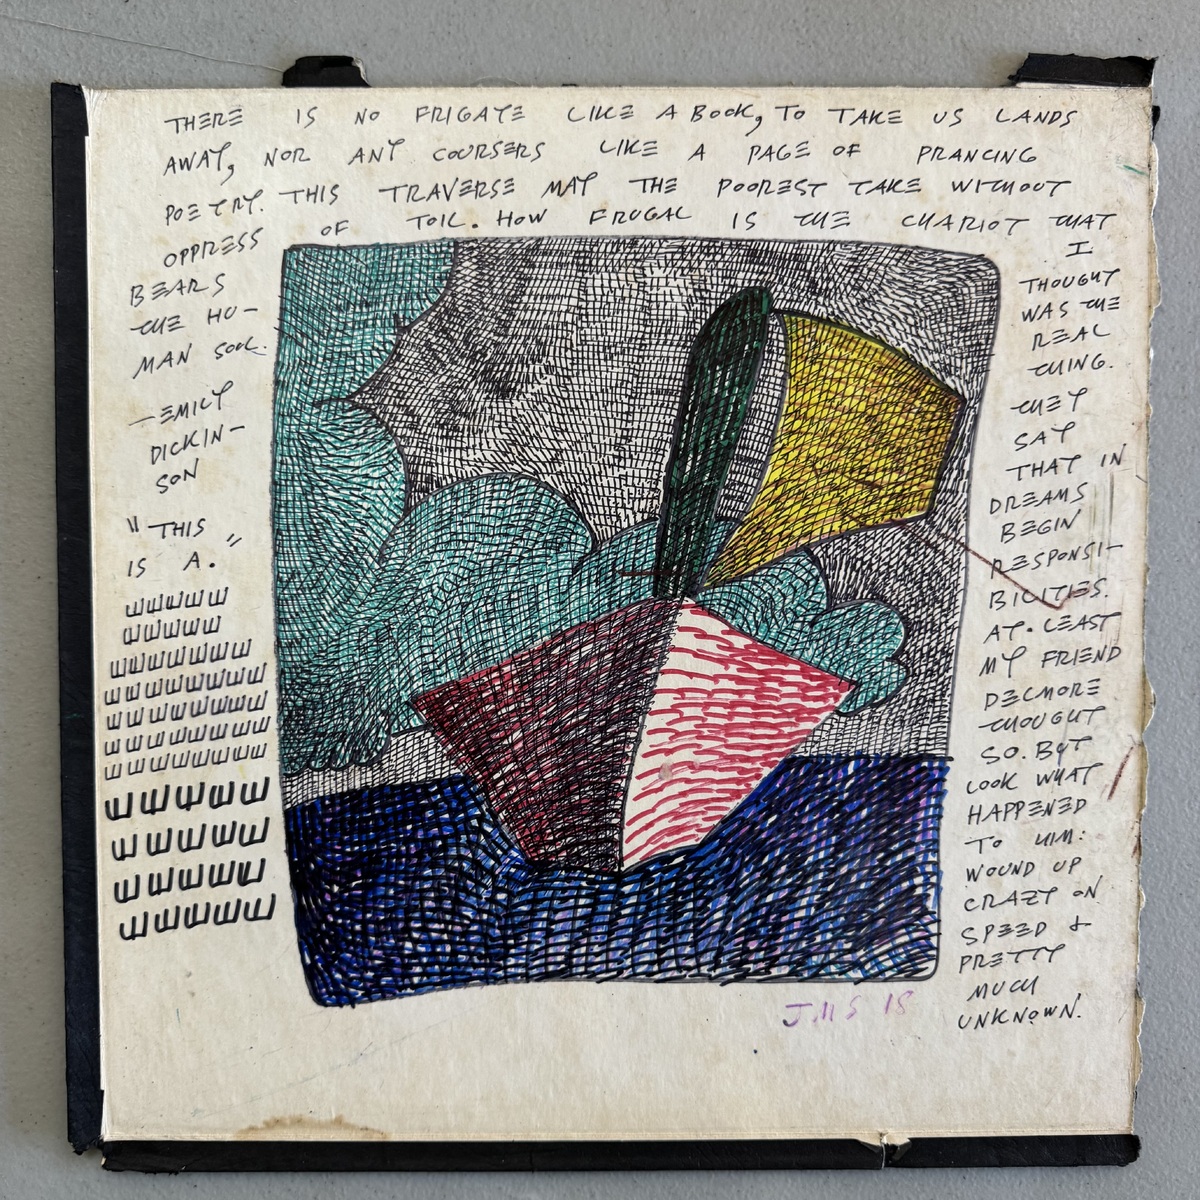 THERE IS NO FRIGATE LIKE A BOOK, TO TAKE US LANDS
AWAY, NOR ANY COURSERS LIKE A PAGE OF PRANCING
POETRY. THIS TRAVERSE MAY THE POOREST TAKE WITHOUT
OPPRESS OF TOIL. HOW FRUGAL IS THE CHARIOT THAT
BEARS
THE HU-
MAN SOUL.
—EMILY
DICKIN-
SON
"THIS
IS A."
I
THOUGHT
WAS THE
REAL
THING.
THEY
SAY
THAT IN
DREAMS
BEGIN
RESPONSI-
BILITIES.
AT. LEAST
MY FRIEND
DELMORE
THOUGHT
SO. BUT
LOOK WHAT
HAPPENED
TO HIM:
WOUND UP
CRAZY ON
SPEED &
PRETTY
MUCH
UNKNOWN.
JMS 18